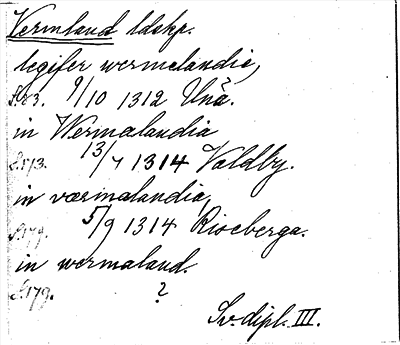 Vermland ldskp.
legifer wermelandie,
9/10 1312 Ună.
in Wermalandia
13/7 1314 Valdby.
in værmalandia,
5/9 1314 Riseberga.
in wermaland.
S. 179. ?
Sv. dipl. III.